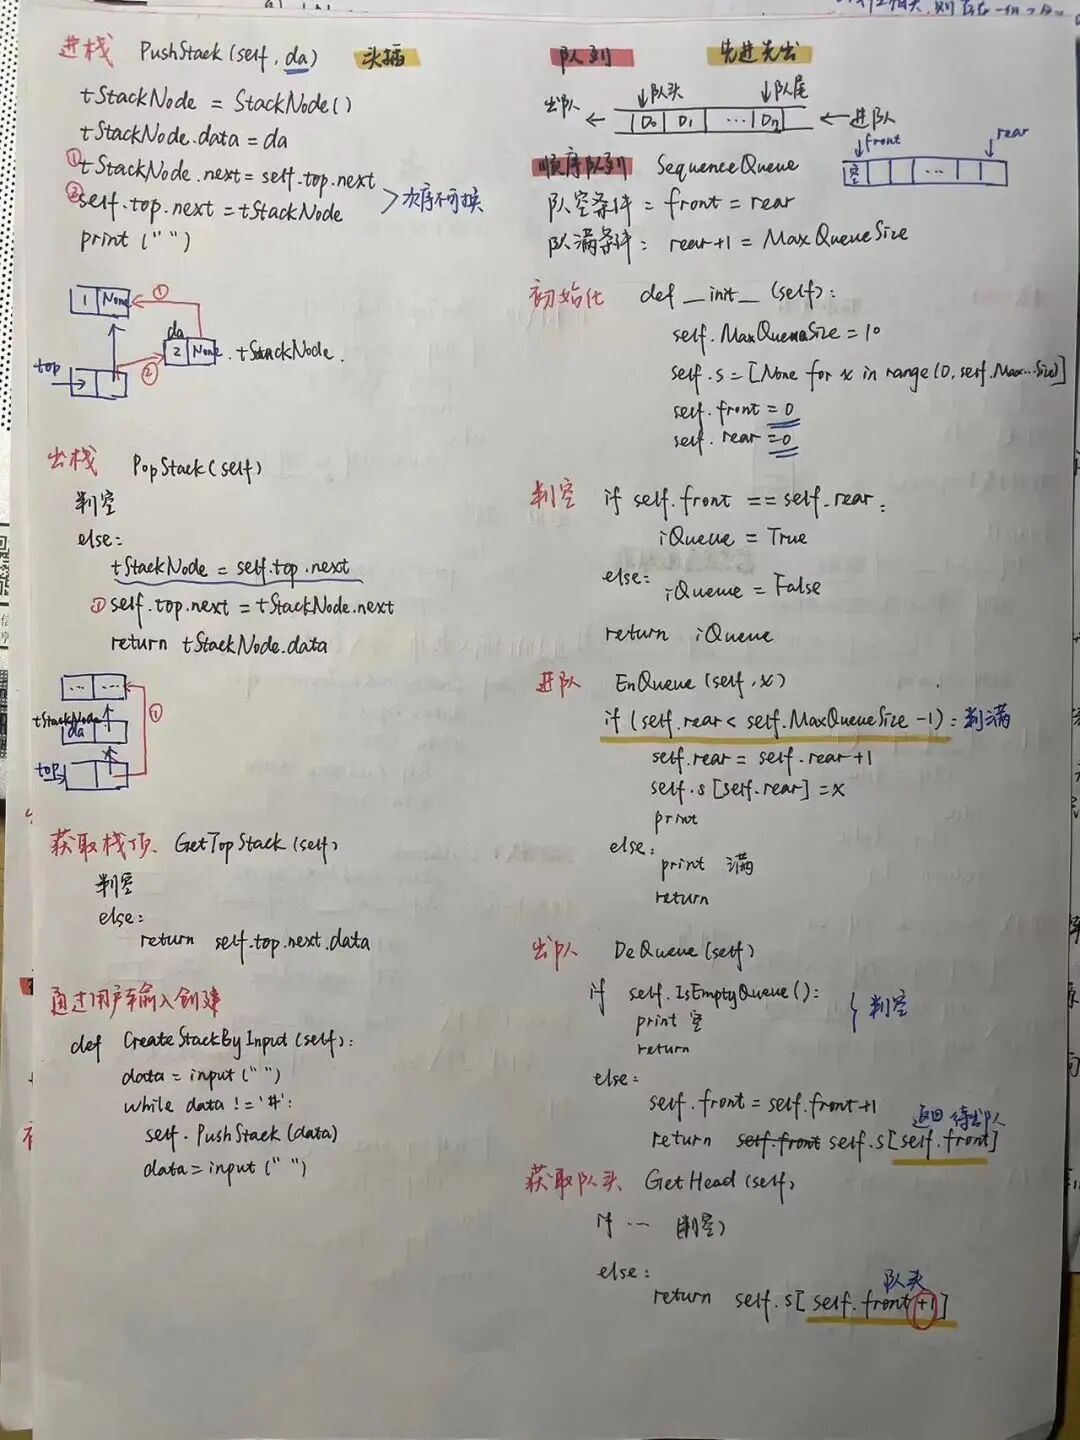 进栈 PushStack(self, da) 头插
tStackNode = StackNode()
tStackNode.data = da
① tStackNode.next = self.top.next
② self.top.next = tStackNode
> 次序不可换
print ("")
1 None ①
da
2 None tStackNode.
top ②
出栈 PopStack(self)
判空
else:
tStackNode = self.top.next
① self.top.next = tStackNode.next
return tStackNode.data
... ...
tStackNode ①
da
top
获取栈顶 GetTopStack(self)
判空
else:
return self.top.next.data
通过用户输入创建
def CreateStackByInput(self):
data = input("")
while data != '#':
self.PushStack(data)
data = input(" ")
队列 先进先出
↓队头 ↓队尾
出队 ← D0 D1 ... Dn ← 进队
顺序队列 SequenceQueue
↓front rear
空 ...
队空条件 = front = rear
队满条件: rear+1 = MaxQueueSize
初始化 def __init__ (self):
self.MaxQueueSize = 10
self.s = [None for x in range(0, self.Max...Size)]
self.front = 0
self.rear = 0
判空 if self.front == self.rear:
iQueue = True
else:
iQueue = False
return iQueue
进队 EnQueue(self, x)
if (self.rear < self.MaxQueueSize -1): 判满
self.rear = self.rear+1
self.s[self.rear] = x
print
else:
print 满
return
出队 DeQueue(self)
if self.IsEmptyQueue(): } 判空
print 空
return
else:
self.front = self.front+1
返回待出队
return self.front self.s[self.front]
获取队头 GetHead(self)
if ... (判空)
else:
队头
return self.s[self.front+1]